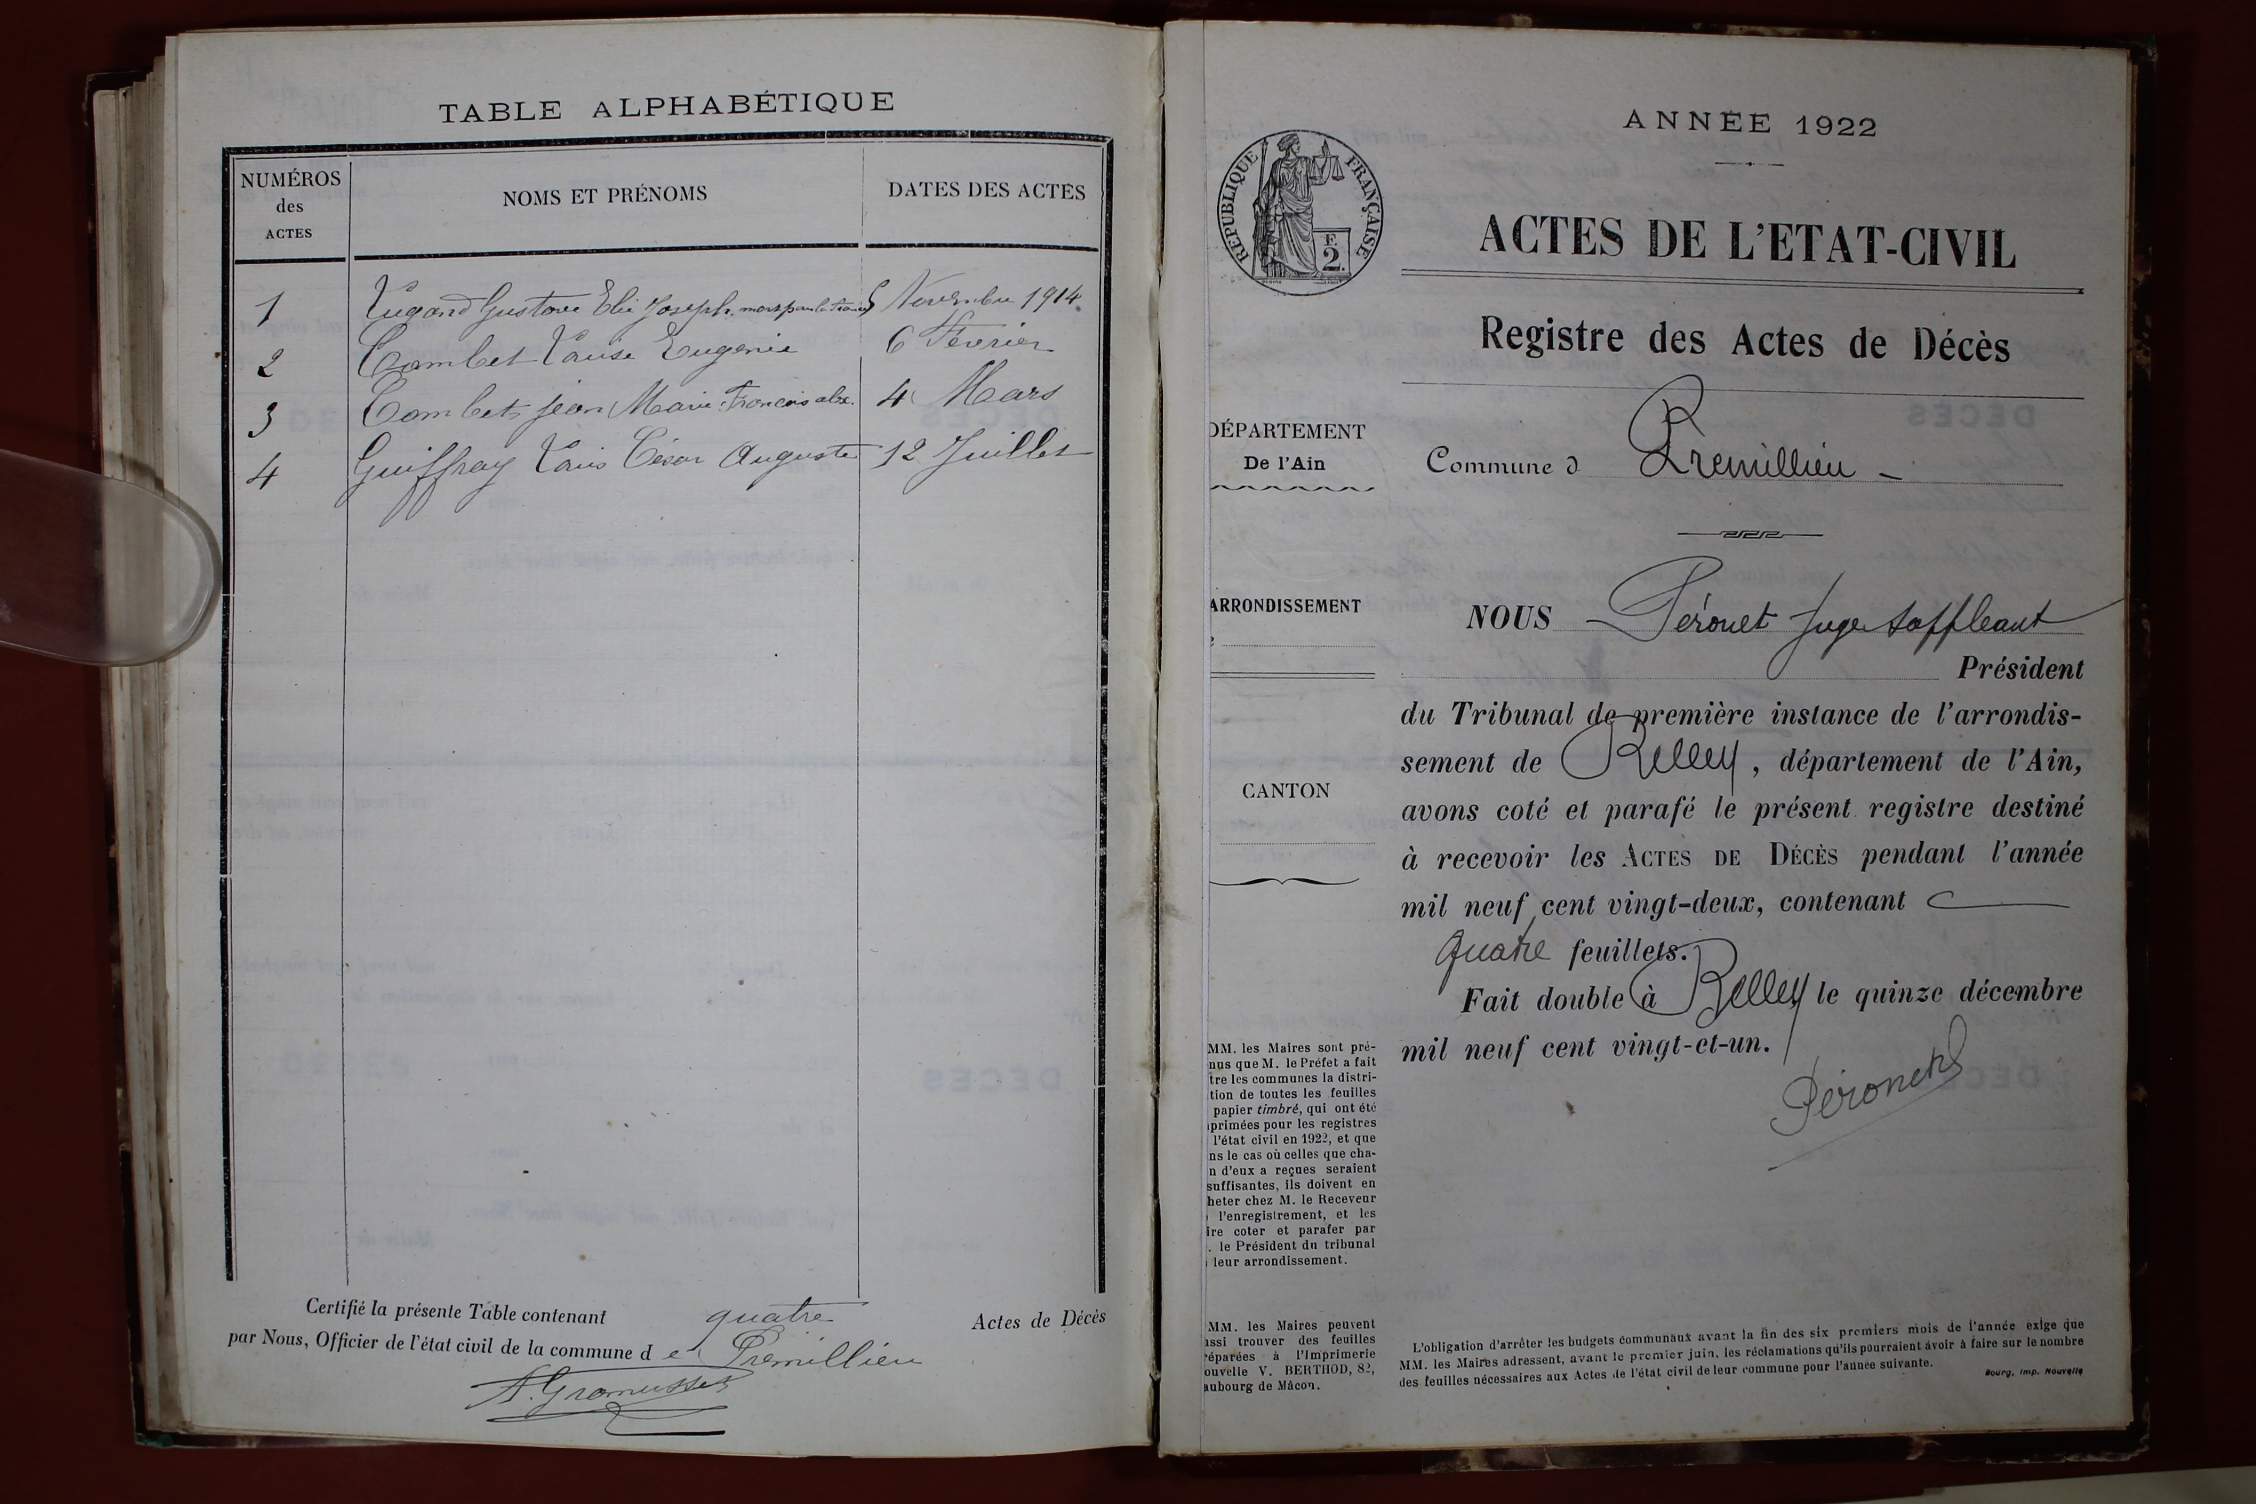 TABLE ALPHABÉTIQUE
NUMÉROS
des
ACTES
NOMS ET PRÉNOMS
DATES DES ACTES
1 Gustave Elie Joseph. mort pour la France 5 Novembre 1914.
2 Combet Louise Eugenie 6 Fevrier
3 Combet jean Marie François alex. 4 Mars
4 Guiffray Louis César Auguste 12 Juillet
Certifié la présente Table contenant quatre Actes de Décès
par Nous, Officier de l'état civil de la commune d e Prémillieu
ANNÉE 1922
RÉPUBLIQUE FRANÇAISE
E
2
ACTES DE L'ETAT-CIVIL
Registre des Actes de Décès
DÉPARTEMENT
De l'Ain
Commune d Prémillieu
ARRONDISSEMENT
CANTON
NOUS Pérouet Juge suppléant
Président
du Tribunal de première instance de l'arrondis-
sement de Belley, département de l'Ain,
avons coté et parafé le présent registre destiné
à recevoir les ACTES DE DÉCÈS pendant l'année
mil neuf cent vingt-deux, contenant
quatre feuillets.
Fait double à Belley le quinze décembre
mil neuf cent vingt-et-un.
MM. les Maires sont pré-
nus que M. le Préfet a fait
tre les communes la distri-
tion de toutes les feuilles
papier timbré, qui ont été
primées pour les registres
l'état civil en 1922, et que
ns le cas où celles que cha-
n d'eux a reçues seraient
suffisantes, ils doivent en
heter chez M. le Receveur
l'enregistrement, et les
ire coter et parafer par
. le Président du tribunal
leur arrondissement.
MM. les Maires peuvent
ussi trouver des feuilles
réparées à l'Imprimerie
ouvelle V. BERTHOD, 82,
aubourg de Mâcon.
L'obligation d'arrêter les budgets communaux avant la fin des six premiers mois de l'année exige que
MM. les Maires adressent, avant le premier juin, les réclamations qu'ils pourraient avoir à faire sur le nombre
des feuilles nécessaires aux Actes de l'état civil de leur commune pour l'année suivante.
Bourg, Imp. Nouvelle